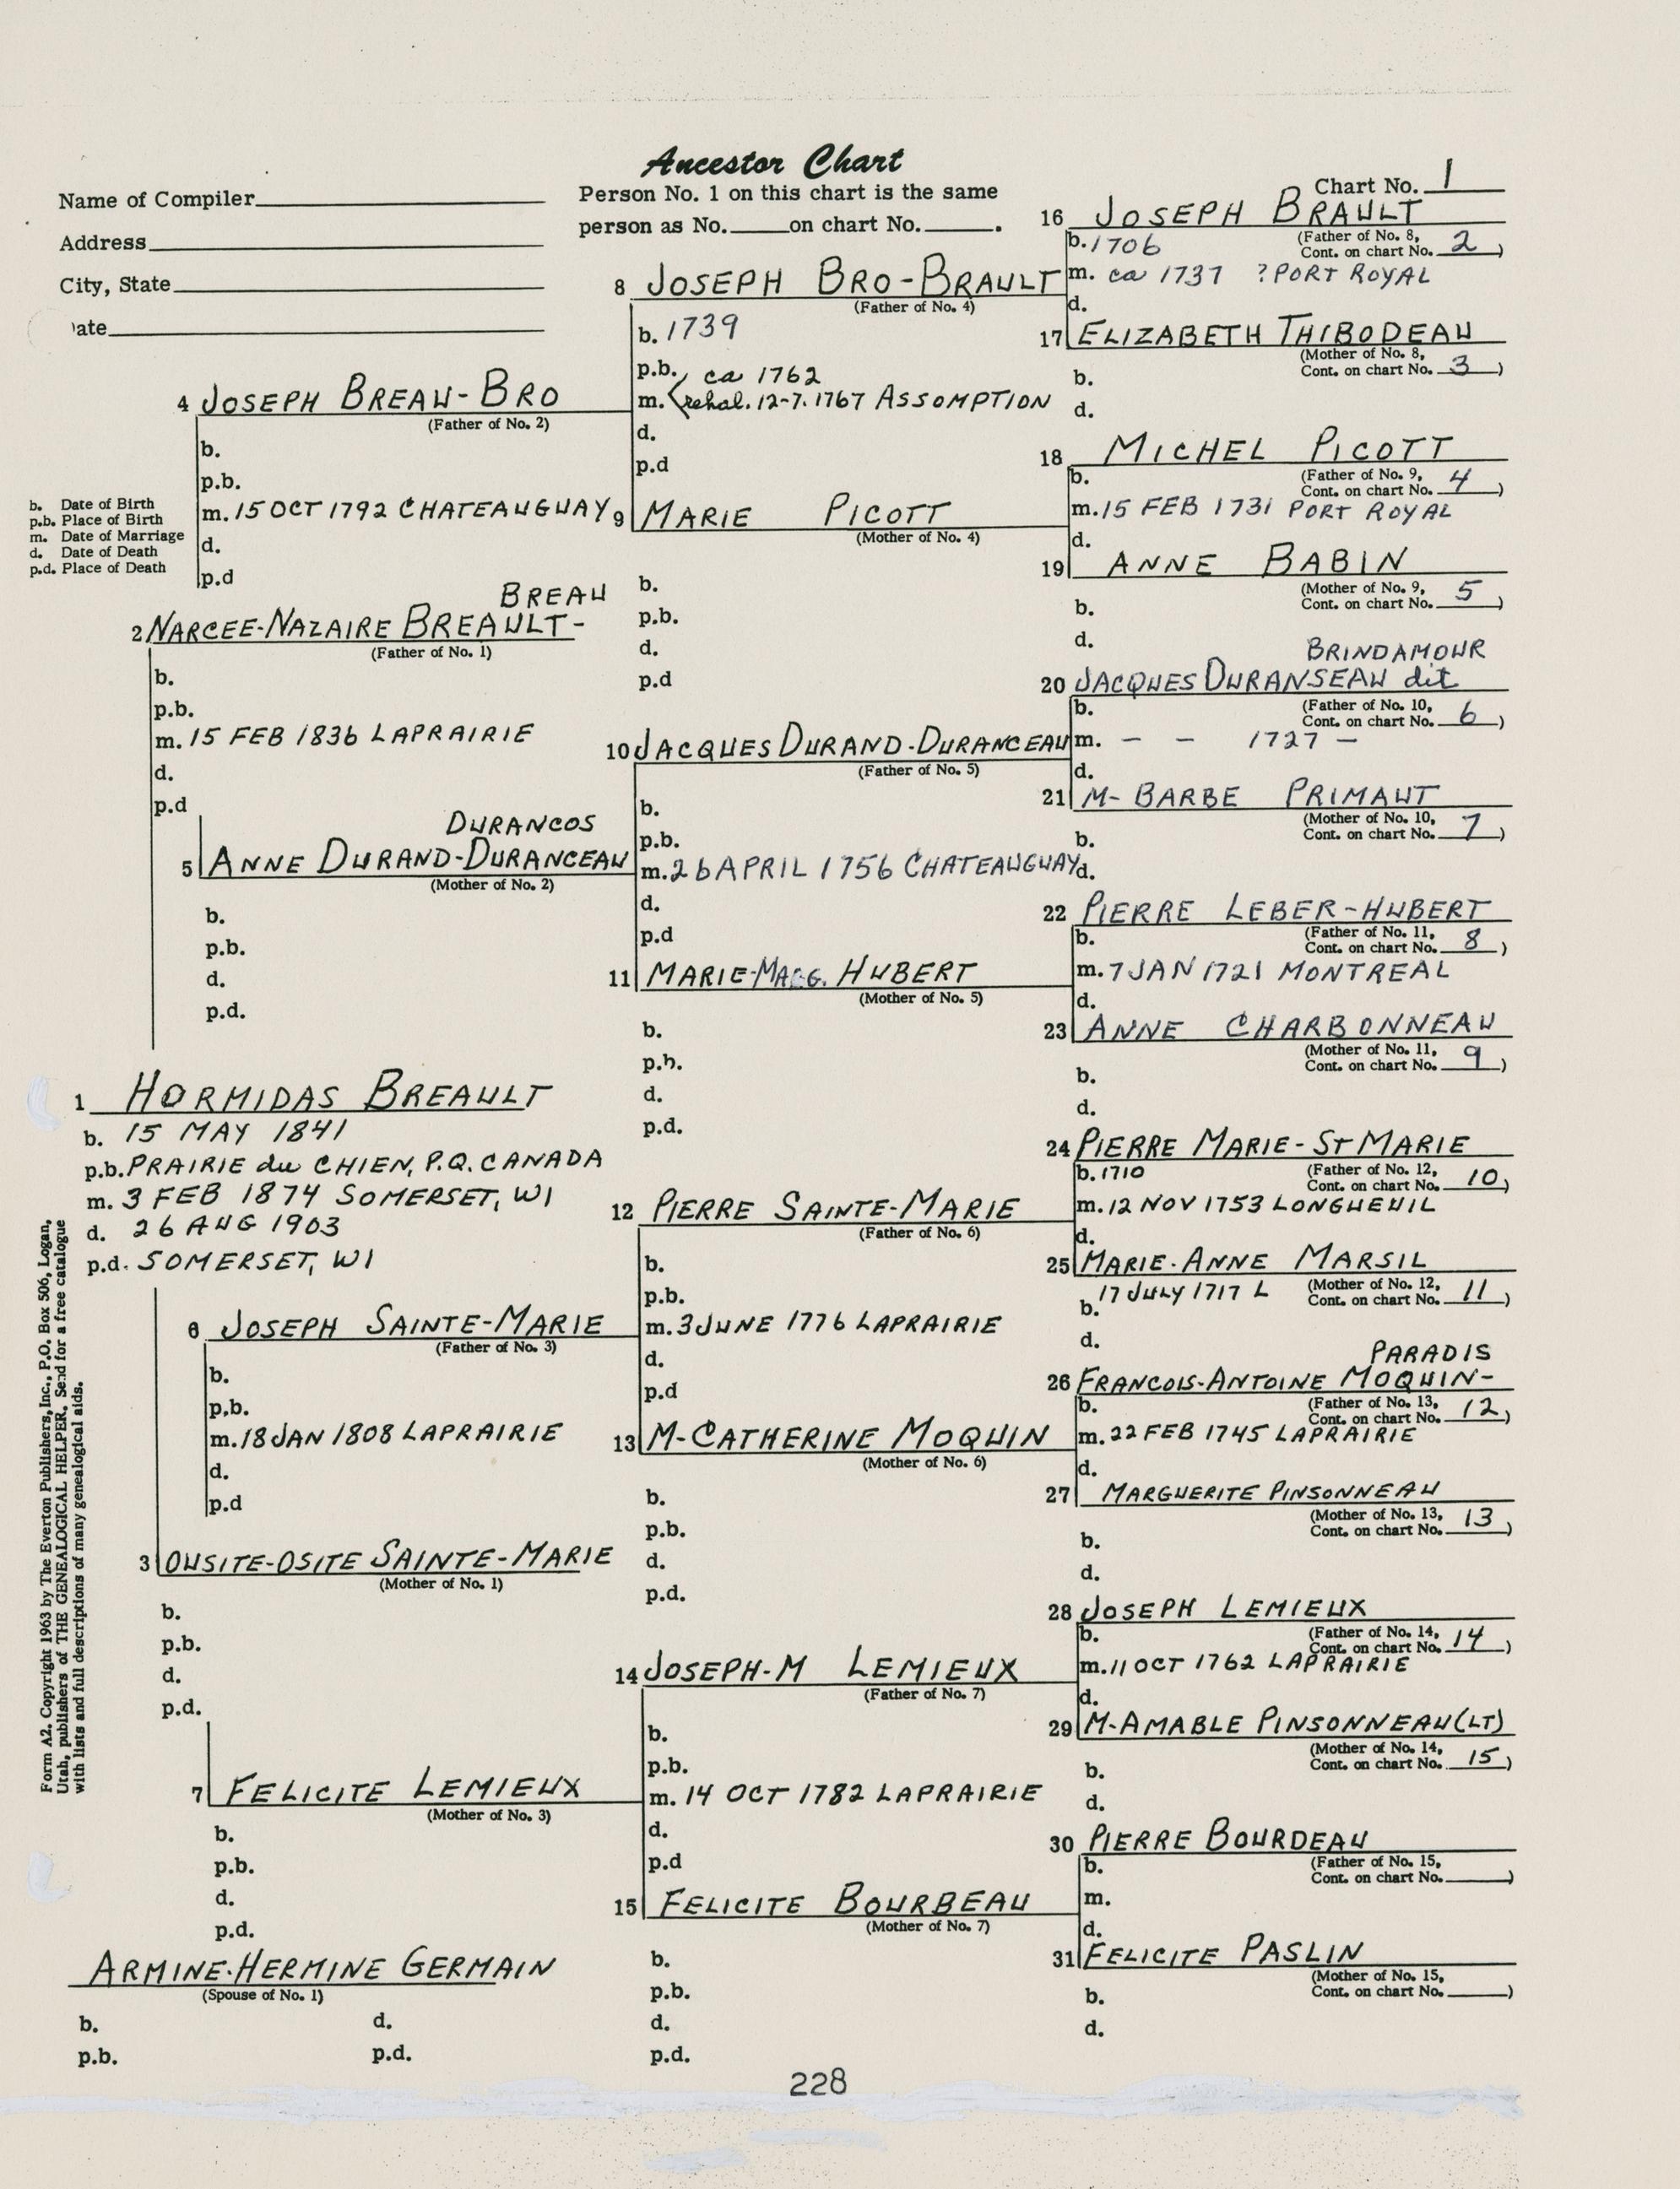 Ancestor Chart
Name of Compiler
Address
City, State
ate
Person No. 1 on this chart is the same
person as No. on chart No. .
Chart No. 1
b. Date of Birth
p.b. Place of Birth
m. Date of Marriage
d. Date of Death
p.d. Place of Death
1 HORMIDAS BREAULT
b. 15 MAY 1841
p.b. PRAIRIE du CHIEN, P.Q. CANADA
m. 3 FEB 1874 SOMERSET, WI
d. 26 AUG 1903
p.d. SOMERSET, WI
BREAU
2 NARCEE-NAZAIRE BREAULT-
(Father of No. 1)
b.
p.b.
m. 15 FEB 1836 LAPRAIRIE
d.
p.d
3 OUSITE-OSITE SAINTE-MARIE
(Mother of No. 1)
b.
p.b.
d.
p.d.
4 JOSEPH BREAU-BRO
(Father of No. 2)
b.
p.b.
m. 15 OCT 1792 CHATEAUGUAY
d.
p.d
DURANCOS
5 ANNE DURAND-DURANCEAU
(Mother of No. 2)
b.
p.b.
d.
p.d.
6 JOSEPH SAINTE-MARIE
(Father of No. 3)
b.
p.b.
m. 18 JAN 1808 LAPRAIRIE
d.
p.d
7 FELICITE LEMIEUX
(Mother of No. 3)
b.
p.b.
d.
p.d.
ARMINE-HERMINE GERMAIN
(Spouse of No. 1)
b. d.
p.b. p.d.
8 JOSEPH BRO-BRAULT
(Father of No. 4)
b. 1739
p.b. ca 1762
m. (rehal. 12-7. 1767 ASSOMPTION
d.
p.d
9 MARIE PICOTT
(Mother of No. 4)
b.
p.b.
d.
p.d
10 JACQUES DURAND-DURANCEAU
(Father of No. 5)
b.
p.b.
m. 26 APRIL 1756 CHATEAUGUAY
d.
p.d
11 MARIE-MAGG. HUBERT
(Mother of No. 5)
b.
p.b.
d.
p.d.
12 PIERRE SAINTE-MARIE
(Father of No. 6)
b.
p.b.
m. 3 JUNE 1776 LAPRAIRIE
d.
p.d
13 M-CATHERINE MOQUIN
(Mother of No. 6)
b.
p.b.
d.
p.d.
14 JOSEPH-M LEMIEUX
(Father of No. 7)
b.
p.b.
m. 14 OCT 1782 LAPRAIRIE
d.
p.d
15 FELICITE BOURBEAU
(Mother of No. 7)
b.
p.b.
d.
p.d.
16 JOSEPH BRAULT
b. 1706 (Father of No. 8,
Cont. on chart No. 2)
m. ca 1737 ? PORT ROYAL
d.
17 ELIZABETH THIBODEAU
(Mother of No. 8,
Cont. on chart No. 3)
b.
d.
18 MICHEL PICOTT
b. (Father of No. 9,
Cont. on chart No. 4)
m. 15 FEB 1731 PORT ROYAL
d.
19 ANNE BABIN
(Mother of No. 9,
Cont. on chart No. 5)
b.
d.
BRINDAMOUR
20 JACQUES DURANSEAU dit
b. (Father of No. 10,
Cont. on chart No. 6)
m. - - 1727 -
d.
21 M-BARBE PRIMAUT
(Mother of No. 10,
Cont. on chart No. 7)
b.
d.
22 PIERRE LEBER-HUBERT
b. (Father of No. 11,
Cont. on chart No. 8)
m. 7 JAN 1721 MONTREAL
d.
23 ANNE CHARBONNEAU
(Mother of No. 11,
Cont. on chart No. 9)
b.
d.
24 PIERRE MARIE-ST MARIE
b. 1710 (Father of No. 12,
Cont. on chart No. 10)
m. 12 NOV 1753 LONGUEUIL
d.
25 MARIE-ANNE MARSIL
b. 17 JULY 1717 L (Mother of No. 12,
Cont. on chart No. 11)
d.
PARADIS
26 FRANCOIS-ANTOINE MOQUIN-
b. (Father of No. 13,
Cont. on chart No. 12)
m. 22 FEB 1745 LAPRAIRIE
d.
27 MARGUERITE PINSONNEAU
(Mother of No. 13,
Cont. on chart No. 13)
b.
d.
28 JOSEPH LEMIEUX
b. (Father of No. 14,
Cont. on chart No. 14)
m. 11 OCT 1762 LAPRAIRIE
d.
29 M-AMABLE PINSONNEAU(LT)
(Mother of No. 14,
Cont. on chart No. 15)
b.
d.
30 PIERRE BOURDEAU
b. (Father of No. 15,
Cont. on chart No. )
m.
d.
31 FELICITE PASLIN
(Mother of No. 15,
Cont. on chart No. )
b.
d.
Form A2. Copyright 1963 by The Everton Publishers, Inc., P.O. Box 506, Logan,
Utah, publishers of THE GENEALOGICAL HELPER. Send for a free catalogue
with lists and full descriptions of many genealogical aids.
228